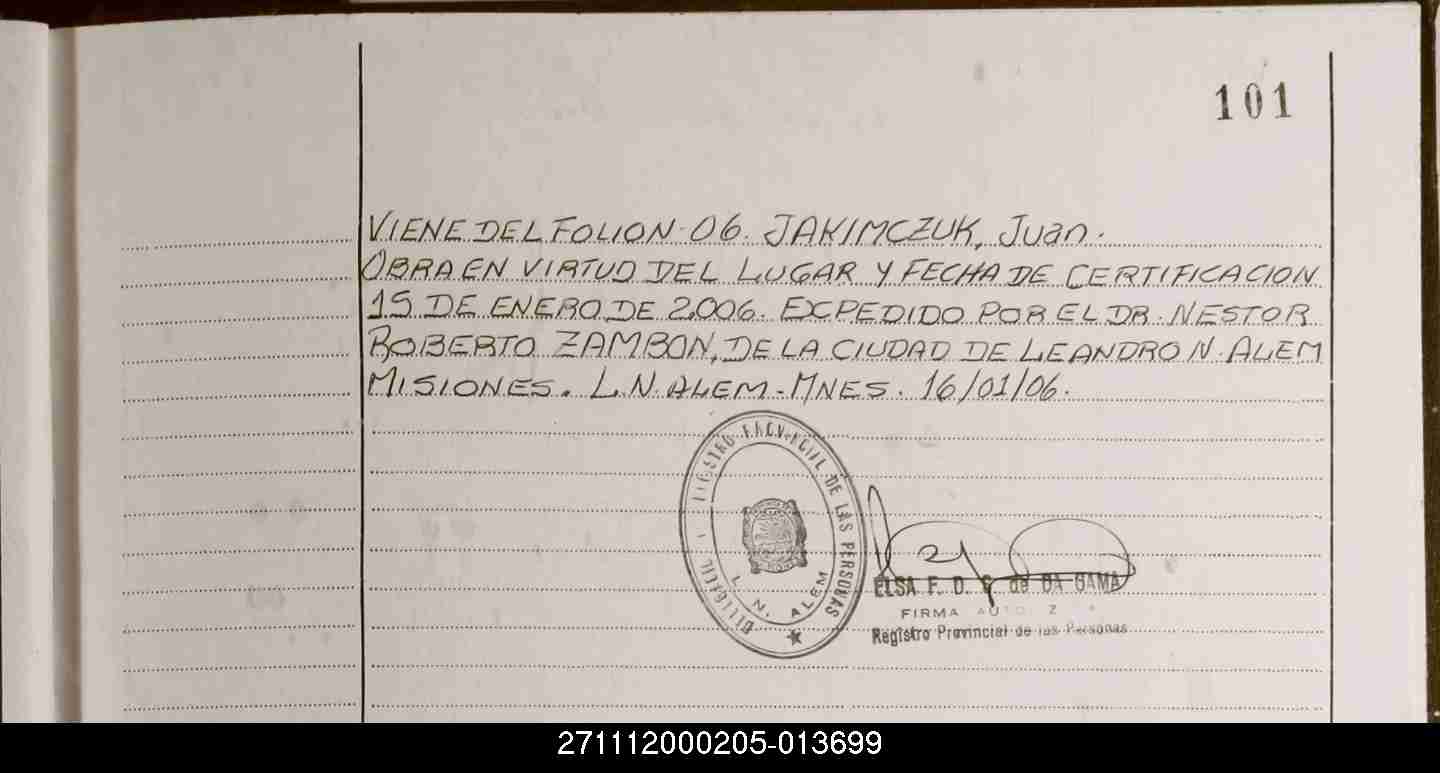 101
VIENE DEL FOLION. 06. JAKIMCZUK, Juan.
OBRA EN VIRTUD DEL LUGAR Y FECHA DE CERTIFICACION
15 DE ENERO DE 2006. EXPEDIDO POR EL DR. NESTOR
ROBERTO ZAMBON, DE LA CIUDAD DE LEANDRO N. ALEM
MISIONES. L.N. ALEM - MNES. 16/01/06.
DE LAS PERSONAS
L. N. ALEM
ELSA F. D. de DA GAMA
FIRMA
Registro Provincial de las Personas
271112000205-013699